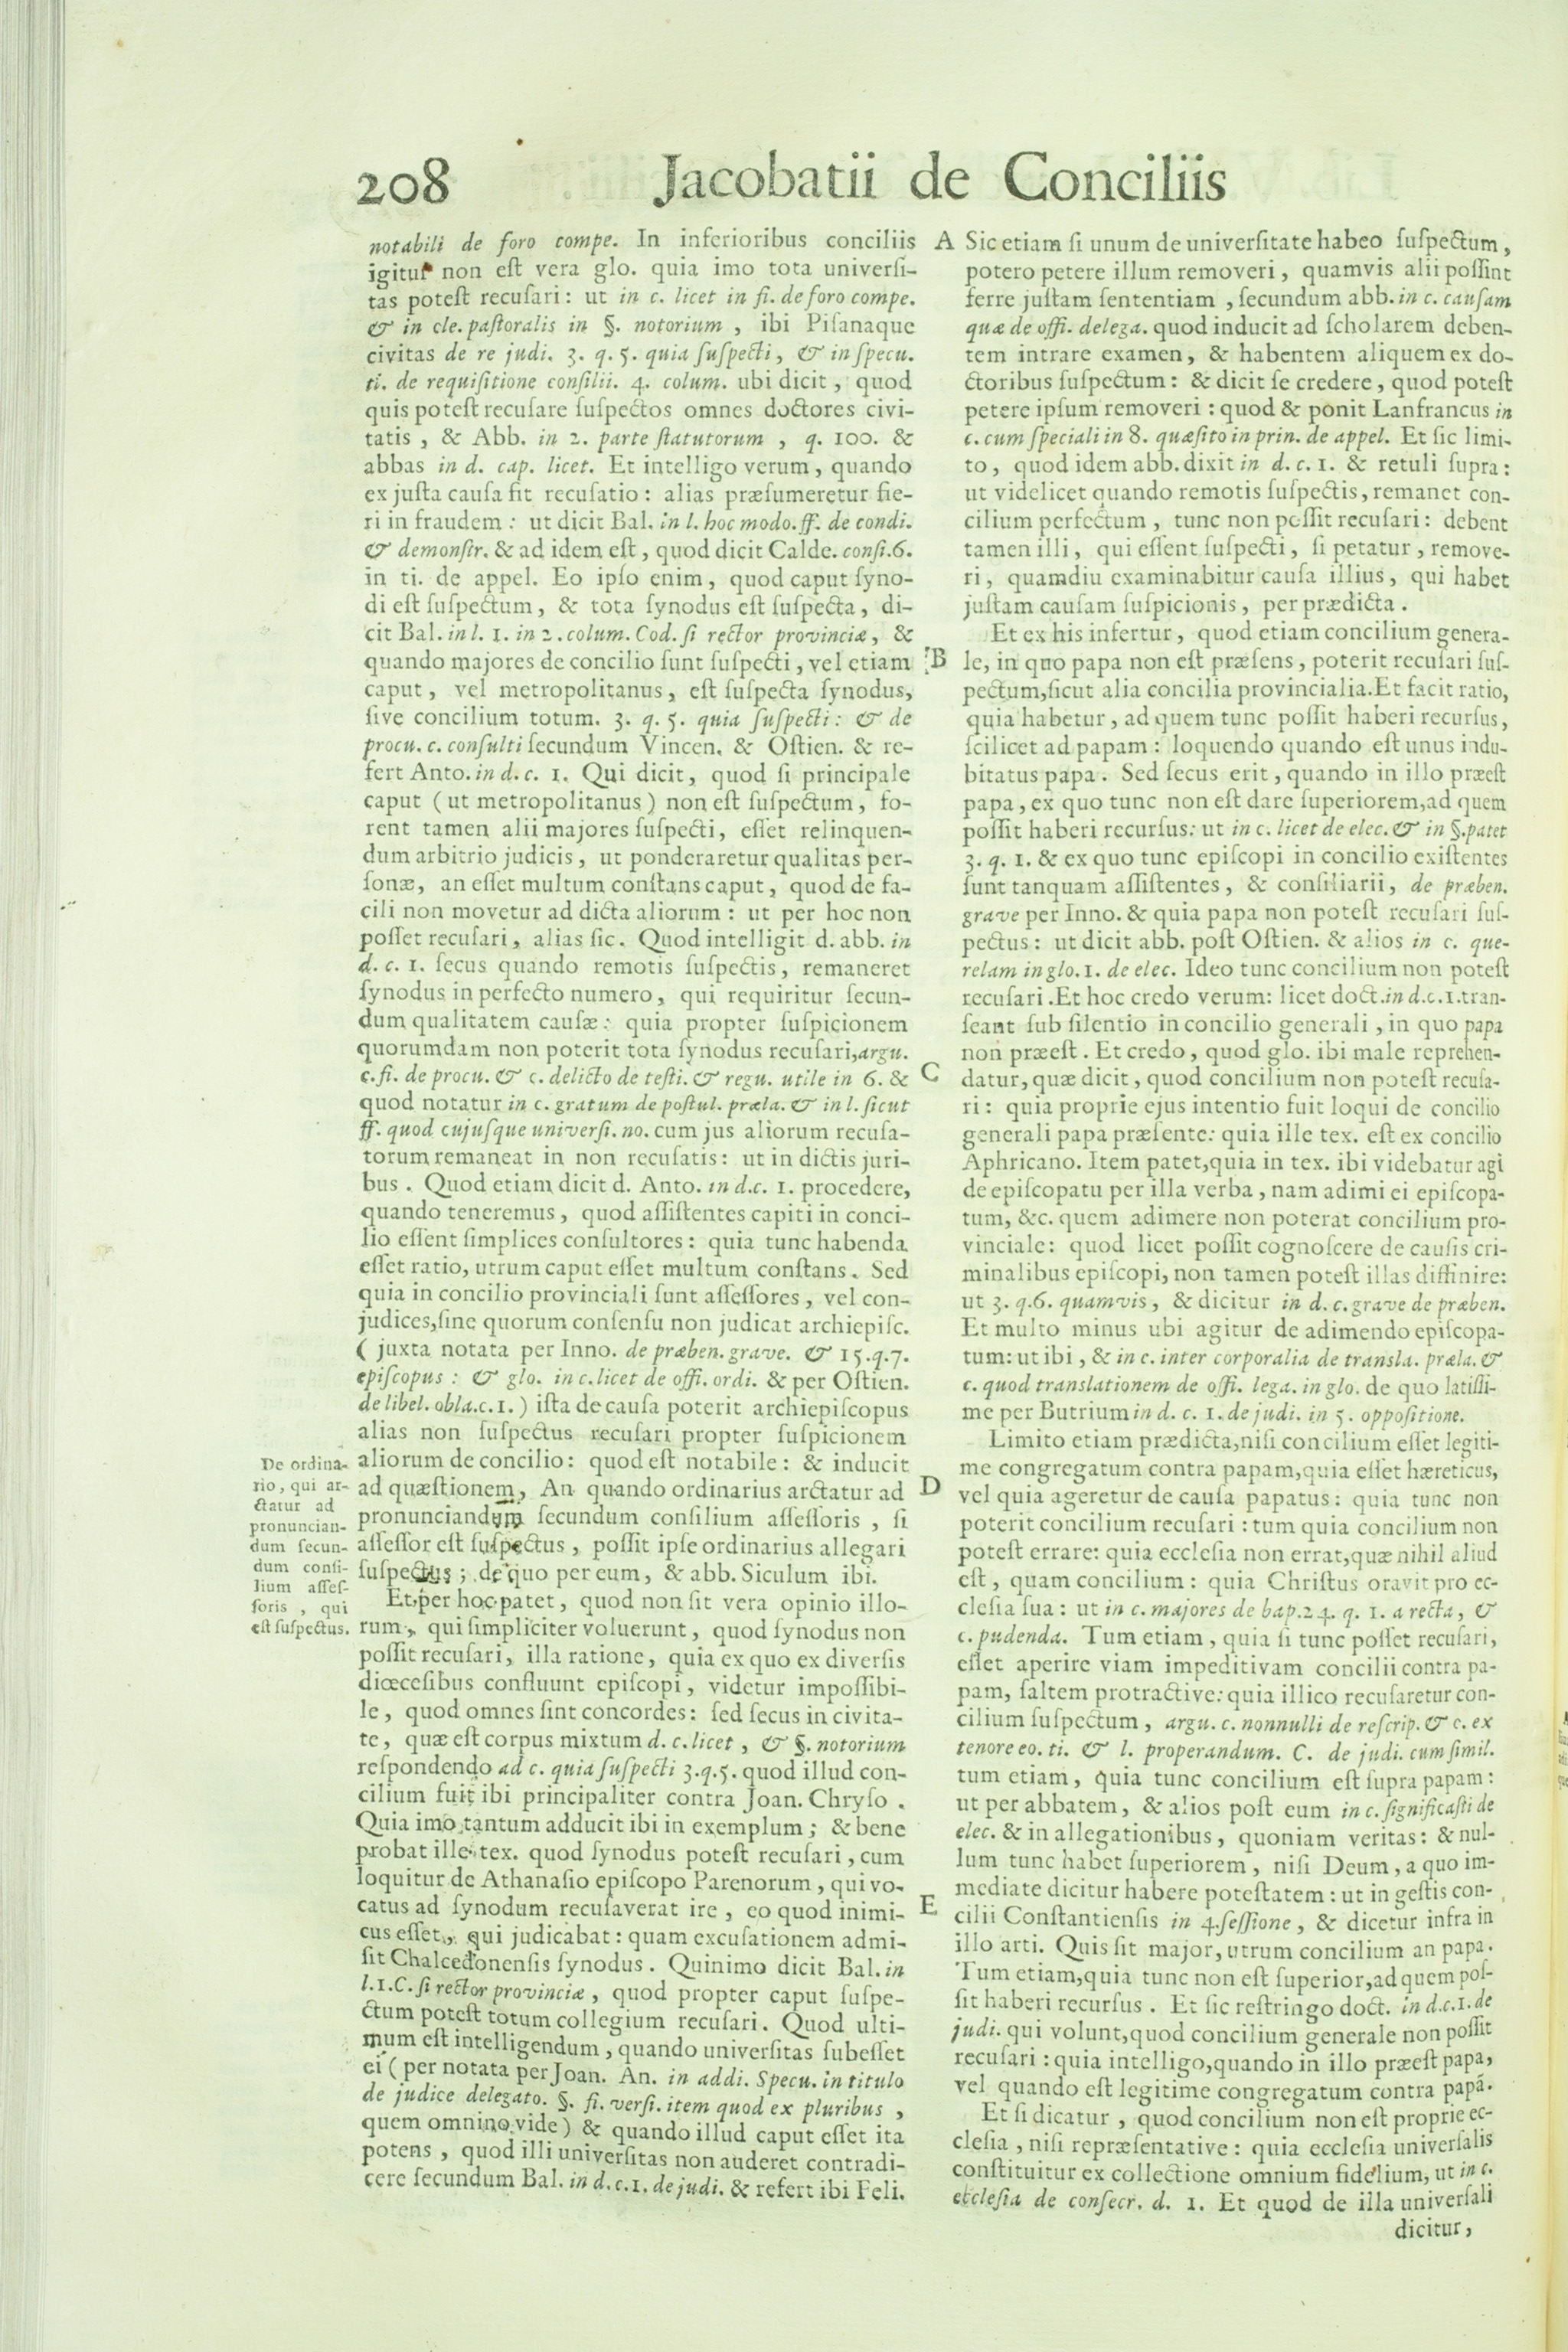 208
Jacobatii de Conciliis
notabili de foro compe. In inferioribus conciliis
igitur non eſt vera glo. quia imo tota univerſi-
tas poteſt recuſari: ut in c. licet in fi. de foro compe.
& in cle. paſtoralis in §. notorium, ibi Piſanaque
civitas de re judi. 3. q. 5. quia ſuſpecti, & in ſpecu.
ti. de requiſitione conſilii. 4. colum. ubi dicit, quod
quis poteſt recuſare ſuſpectos omnes doctores civi-
tatis, & Abb. in 2. parte ſtatutorum, q. 100. &
abbas in d. cap. licet. Et intelligo verum, quando
ex juſta cauſa fit recuſatio: alias præſumeretur fie-
ri in fraudem: ut dicit Bal. in l. hoc modo. ff. de condi.
& demonſtr. & ad idem eſt, quod dicit Calde. conſi. 6.
in ti. de appel. Eo ipſo enim, quod caput ſyno-
di eſt ſuſpectum, & tota ſynodus eſt ſuſpecta, di-
cit Bal. in l. 1. in 2. colum. Cod. ſi rector provinciæ, &
quando majores de concilio ſunt ſuſpecti, vel etiam
caput, vel metropolitanus, eſt ſuſpecta ſynodus,
ſive concilium totum. 3. q. 5. quia ſuſpecti: & de
procu. c. conſulti ſecundum Vincen. & Oſtien. & re-
fert Anto. in d. c. 1. Qui dicit, quod ſi principale
caput (ut metropolitanus) non eſt ſuſpectum, fo-
rent tamen alii majores ſuſpecti, eſſet relinquen-
dum arbitrio judicis, ut ponderaretur qualitas per-
ſonæ, an eſſet multum conſtans caput, quod de fa-
cili non movetur ad dicta aliorum: ut per hoc non
poſſet recuſari, alias ſic. Quod intelligit d. abb. in
d. c. 1. ſecus quando remotis ſuſpectis, remaneret
ſynodus in perfecto numero, qui requiritur ſecun-
dum qualitatem cauſæ: quia propter ſuſpicionem
quorumdam non poterit tota ſynodus recuſari, argu.
c. fi. de procu. & c. delicto de teſti. & regu. utile in 6. &
quod notatur in c. gratum de poſtul. præla. & in l. ſicut
ff. quod cujuſque univerſi. no. cum jus aliorum recuſa-
torum remaneat in non recuſatis: ut in dictis juri-
bus. Quod etiam dicit d. Anto. in d.c. 1. procedere,
quando teneremus, quod aſſiſtentes capiti in conci-
lio eſſent ſimplices conſultores: quia tunc habenda
eſſet ratio, utrum caput eſſet multum conſtans. Sed
quia in concilio provinciali ſunt aſſeſſores, vel con-
judices, ſine quorum conſenſu non judicat archiepiſc.
(juxta notata per Inno. de præben. grave. & 15. q. 7.
epiſcopus: & glo. in c. licet de offi. ordi. & per Oſtien.
de libel. obla. c. 1.) iſta de cauſa poterit archiepiſcopus
alias non ſuſpectus recuſari propter ſuſpicionem
aliorum de concilio: quod eſt notabile: & inducit
ad quæſtionem, An quando ordinarius arctatur ad
pronunciandum ſecundum conſilium aſſeſſoris, ſi
aſſeſſor eſt ſuſpectus, poſſit ipſe ordinarius allegari
ſuſpectus; de quo per eum, & abb. Siculum ibi.
Et per hoc patet, quod non ſit vera opinio illo-
rum, qui ſimpliciter voluerunt, quod ſynodus non
poſſit recuſari, illa ratione, quia ex quo ex diverſis
diœceſibus confluunt epiſcopi, videtur impoſſibi-
le, quod omnes ſint concordes: ſed ſecus in civita-
te, quæ eſt corpus mixtum d. c. licet, & §. notorium
reſpondendo ad c. quia ſuſpecti 3. q. 5. quod illud con-
cilium fuit ibi principaliter contra Joan. Chryſo.
Quia imo tantum adducit ibi in exemplum; & bene
probat ille tex. quod ſynodus poteſt recuſari, cum
loquitur de Athanaſio epiſcopo Parenorum, qui vo-
catus ad ſynodum recuſaverat ire, eo quod inimi-
cus eſſet, qui judicabat: quam excuſationem admi-
ſit Chalcedonenſis ſynodus. Quinimo dicit Bal. in
l. 1. C. ſi rector provinciæ, quod propter caput ſuſpe-
ctum poteſt totum collegium recuſari. Quod ulti-
mum eſt intelligendum, quando univerſitas ſubeſſet
ei (per notata per Joan. An. in addi. Specu. in titulo
de judice delegato. §. fi. verſi. item quod ex pluribus,
quem omnino vide) & quando illud caput eſſet ita
potens, quod illi univerſitas non auderet contradi-
cere ſecundum Bal. in d. c. 1. de judi. & refert ibi Feli.
De ordina-
rio, qui ar-
ctatur ad
pronuncian-
dum ſecun-
dum conſi-
lium aſſeſ-
ſoris, qui
eſt ſuſpectus.
A
B
C
D
E
Sic etiam ſi unum de univerſitate habeo ſuſpectum,
potero petere illum removeri, quamvis alii poſſint
ferre juſtam ſententiam, ſecundum abb. in c. cauſam
quæ de offi. delega. quod inducit ad ſcholarem deben-
tem intrare examen, & habentem aliquem ex do-
ctoribus ſuſpectum: & dicit ſe credere, quod poteſt
petere ipſum removeri: quod & ponit Lanfrancus in
c. cum ſpeciali in 8. quæſito in prin. de appel. Et ſic limi-
to, quod idem abb. dixit in d. c. 1. & retuli ſupra:
ut videlicet quando remotis ſuſpectis, remanet con-
cilium perfectum, tunc non poſſit recuſari: debent
tamen illi, qui eſſent ſuſpecti, ſi petatur, remove-
ri, quamdiu examinabitur cauſa illius, qui habet
juſtam cauſam ſuſpicionis, per prædicta.
Et ex his infertur, quod etiam concilium genera-
le, in quo papa non eſt præſens, poterit recuſari ſuſ-
pectum, ſicut alia concilia provincialia. Et facit ratio,
quia habetur, ad quem tunc poſſit haberi recurſus,
ſcilicet ad papam: loquendo quando eſt unus indu-
bitatus papa. Sed ſecus erit, quando in illo præeſt
papa, ex quo tunc non eſt dare ſuperiorem, ad quem
poſſit haberi recurſus: ut in c. licet de elec. & in §. patet
3. q. 1. & ex quo tunc epiſcopi in concilio exiſtentes
ſunt tanquam aſſiſtentes, & conſiliarii, de præben.
grave per Inno. & quia papa non poteſt recuſari ſuſ-
pectus: ut dicit abb. poſt Oſtien. & alios in c. que-
relam in glo. 1. de elec. Ideo tunc concilium non poteſt
recuſari. Et hoc credo verum: licet doct. in d.c. 1. tran-
ſeant ſub ſilentio in concilio generali, in quo papa
non præeſt. Et credo, quod glo. ibi male reprehen-
datur, quæ dicit, quod concilium non poteſt recuſa-
ri: quia proprie ejus intentio fuit loqui de concilio
generali papa præſente: quia ille tex. eſt ex concilio
Aphricano. Item patet, quia in tex. ibi videbatur agi
de epiſcopatu per illa verba, nam adimi ei epiſcopa-
tum, &c. quem adimere non poterat concilium pro-
vinciale: quod licet poſſit cognoſcere de cauſis cri-
minalibus epiſcopi, non tamen poteſt illas diffinire:
ut 3. q. 6. quamvis, & dicitur in d. c. grave de præben.
Et multo minus ubi agitur de adimendo epiſcopa-
tum: ut ibi, & in c. inter corporalia de transla. præla. &
c. quod translationem de offi. lega. in glo. de quo latiſſi-
me per Butrium in d. c. 1. de judi. in 5. oppoſitione.
Limito etiam prædicta, niſi concilium eſſet legiti-
me congregatum contra papam, quia eſſet hæreticus,
vel quia ageretur de cauſa papatus: quia tunc non
poterit concilium recuſari: tum quia concilium non
poteſt errare: quia eccleſia non errat, quæ nihil aliud
eſt, quam concilium: quia Chriſtus oravit pro ec-
cleſia ſua: ut in c. majores de bap. 24. q. 1. a recta, &
c. pudenda. Tum etiam, quia ſi tunc poſſet recuſari,
eſſet aperire viam impeditivam concilii contra pa-
pam, ſaltem protractive: quia illico recuſaretur con-
cilium ſuſpectum, argu. c. nonnulli de reſcrip. & c. ex
tenore eo. ti. & l. properandum. C. de judi. cum ſimil.
tum etiam, quia tunc concilium eſt ſupra papam:
ut per abbatem, & alios poſt eum in c. ſignificaſti de
elec. & in allegationibus, quoniam veritas: & nul-
lum tunc habet ſuperiorem, niſi Deum, a quo im-
mediate dicitur habere poteſtatem: ut in geſtis con-
cilii Conſtantienſis in 4. ſeſſione, & dicetur infra in
illo arti. Quis ſit major, utrum concilium an papa.
Tum etiam, quia tunc non eſt ſuperior, ad quem poſ-
ſit haberi recurſus. Et ſic reſtringo doct. in d.c. 1. de
judi. qui volunt, quod concilium generale non poſſit
recuſari: quia intelligo, quando in illo præeſt papa,
vel quando eſt legitime congregatum contra papã.
Et ſi dicatur, quod concilium non eſt proprie ec-
cleſia, niſi repræſentative: quia eccleſia univerſalis
conſtituitur ex collectione omnium fidelium, ut in c.
eccleſia de conſecr. d. 1. Et quod de illa univerſali
dicitur,